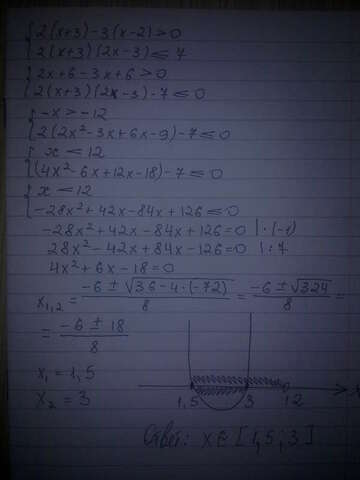 { 2(x+3)-3(x-2)>0
{ 2(x+3)(2x-3)≤7
{ 2x+6-3x+6>0
{ 2(x+3)(2x-3)-7≤0
{ -x>-12
{ 2(2x²-3x+6x-9)-7≤0
{ x<12
{ (4x²-6x+12x-18)-7≤0
{ x<12
{ -28x²+42x-84x+126≤0
-28x²+42x-84x+126=0 |·(-1)
28x²-42x+84x-126=0 |:7
4x²+6x-18=0
x₁,₂=(-6±√(36-4·(-72)))/8=(-6±√324)/8=
=(-6±18)/8
x₁=1,5
x₂=3
1,5 3 12 x
Ответ: x∈[1,5;3]